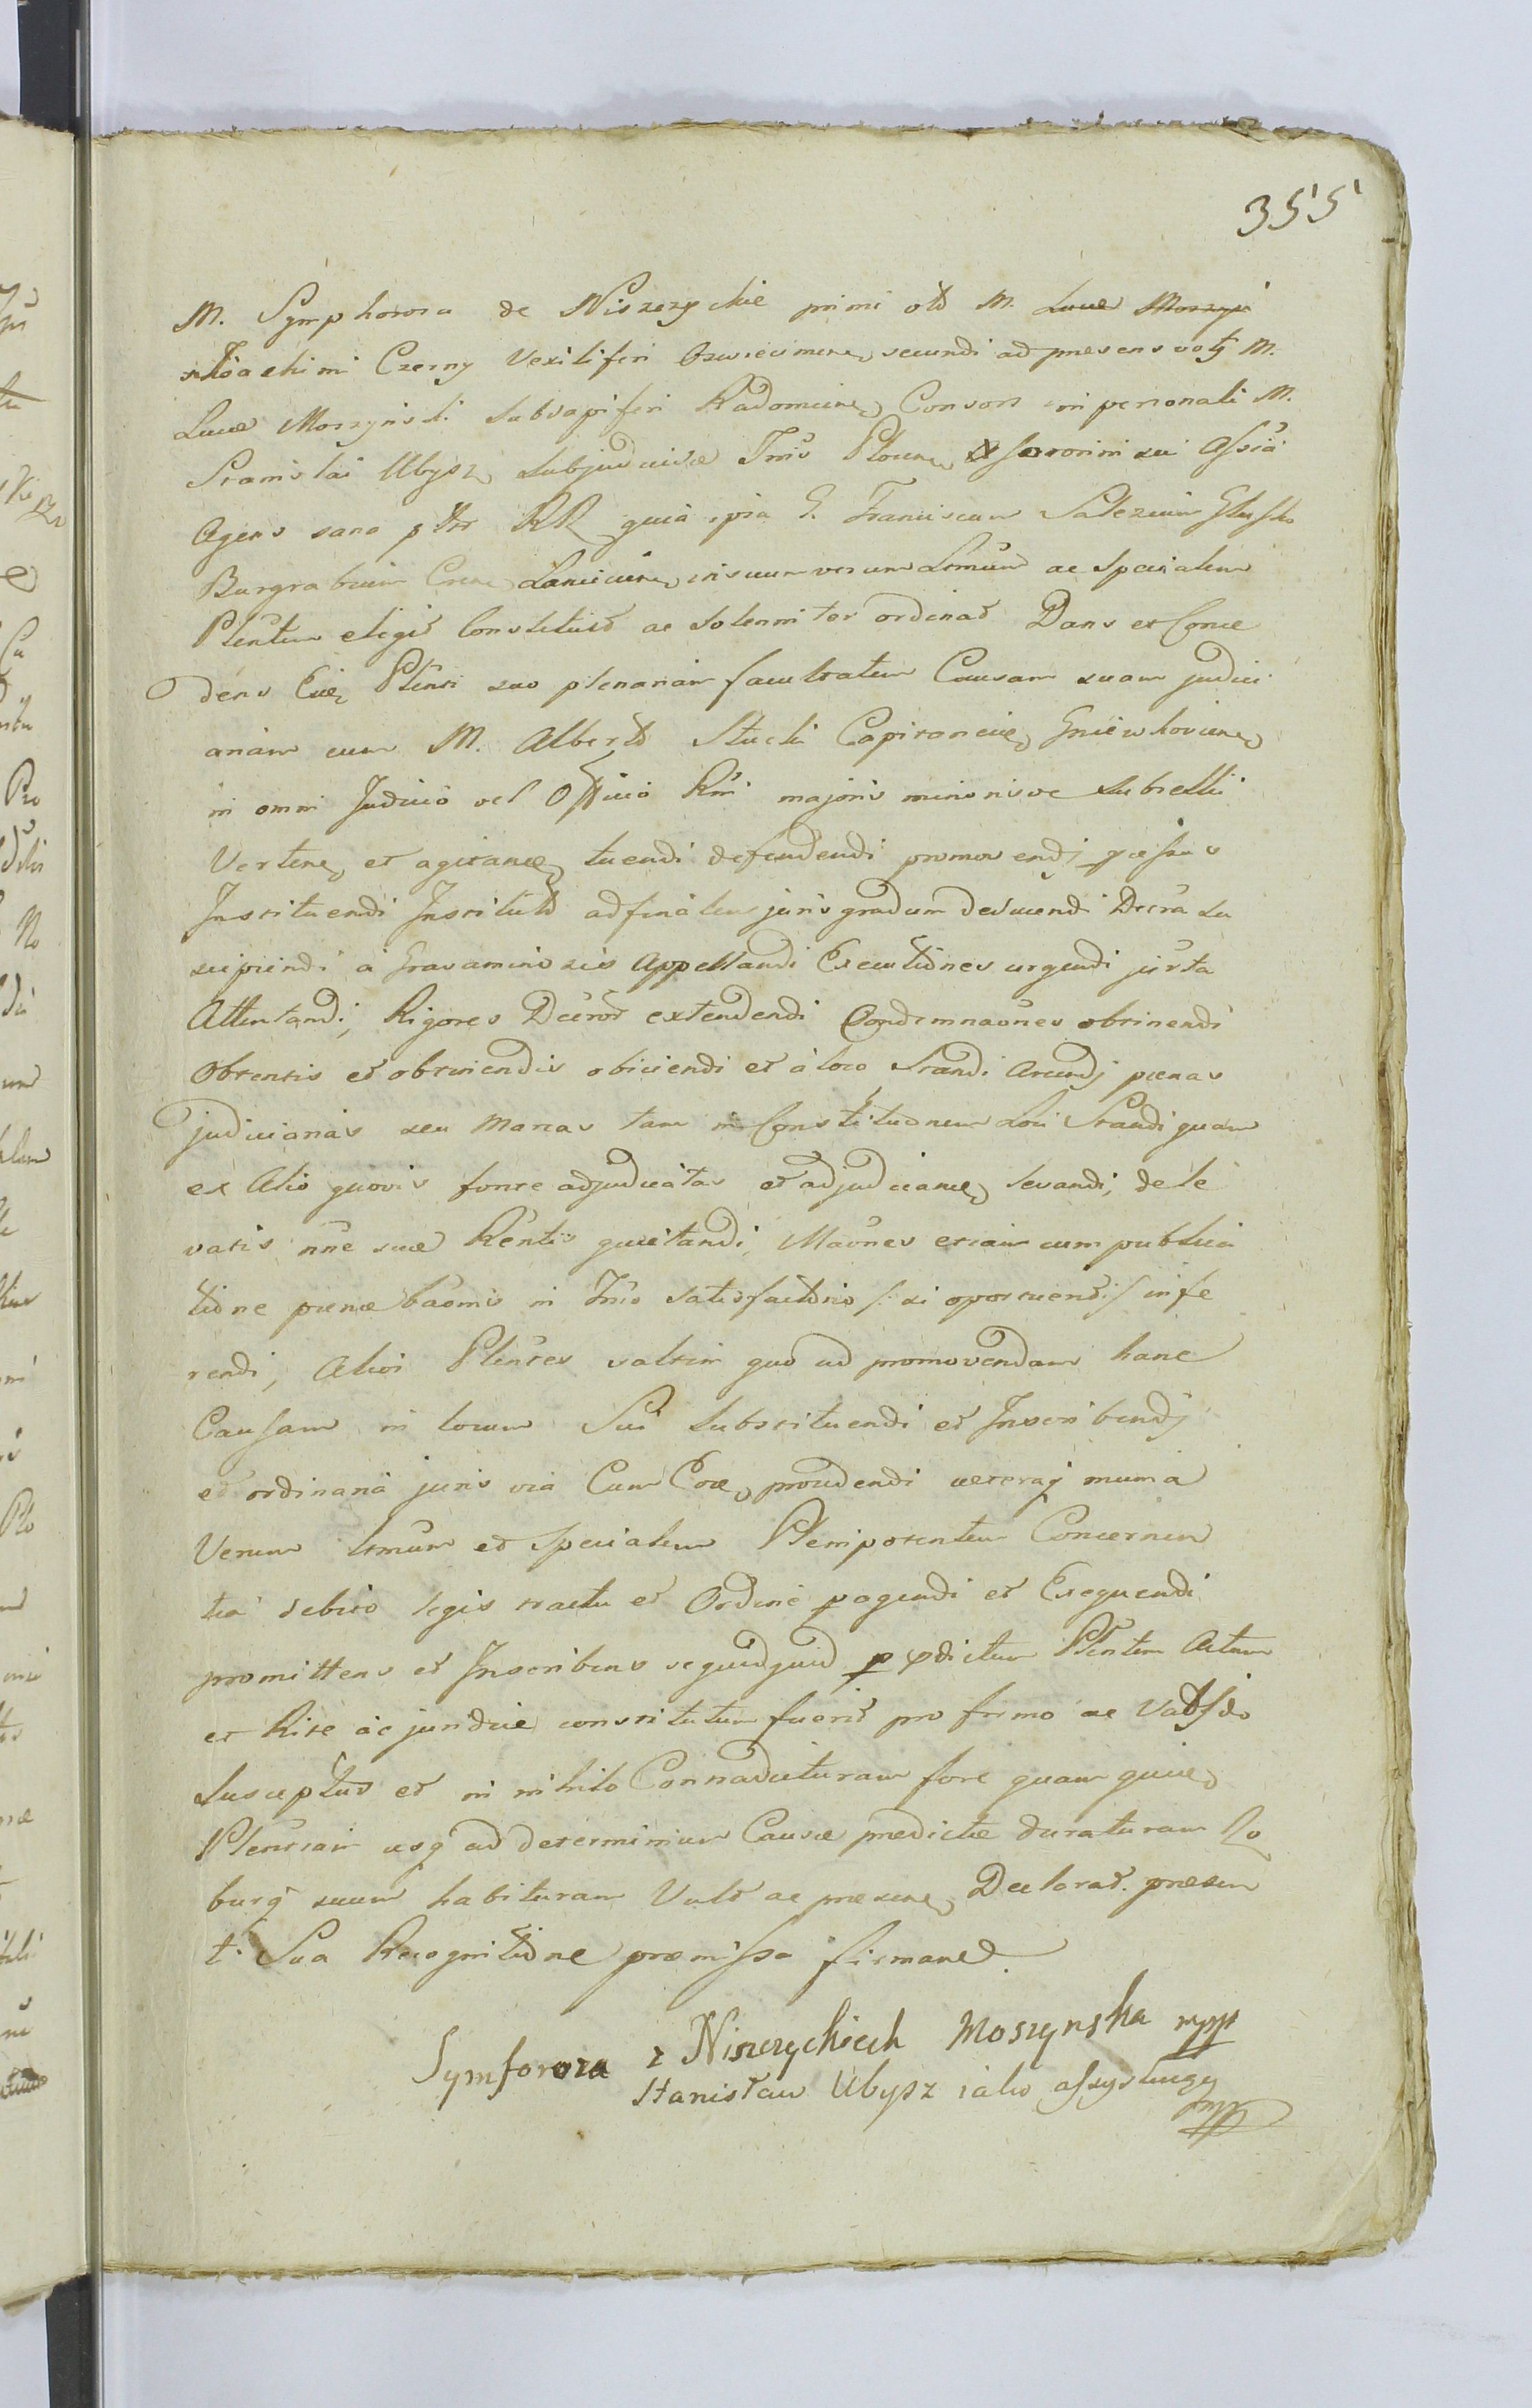 355
M. Symphorosa de Niszczyckie primi oto M. Lucae Moszyn
Joachimi Czerny Vexiliferi Oswiecimen, secundi ad praesens voti M.
Lucae Moszynski Subdapiferi Radomien, Consors in personali M.
Stanislai Ubysz Subjudicis Tris Plocen, sororini sui Assia
Agens sano RR quia ipsa G. Franciscum Salezium
Burgrabium Cren Lanicien, in suum verum Ltmum ac Specialem
Plentem elegit Constituit ac Solenniter ordinat Dans et Conce
dens Eid Plenti suo plenariam facultatem Causam suam judici
ariam cum M. Alberto Stucki Capitaneo, Gniewkovien,
in omni Judicio vel Officio Rni majoris minorisve Subsellii
Verten, et agitan, tuendi defendendi promovendi pcessus
Instituendi Instituto ad finalem juris gradum deducendi Decra su
scipiendi a Gravaminosis Appellandi Executiones urgendi jurta
Attentandi, Rigores Decror extendendi Condemnaones obtinendi
Obtentis et obtinendis obiiciendi et a loco Standi Arcendi paenas
judiciarias seu marcas tam in Constitutionem Loci Standi quam
ex Alio quovis fonte adjudicatas et adjudican, levandi, de le
vatis nne suae Rentis quietandi, Maones etiam cum publica
tione paenae baonis in Trio satisfactorio /: si oportuerit :/ infe
rendi, Alios Plentes saltim quo ad promovendam hanc
Causam in locum Sui Substituendi et Inscribendi
et ordinaria juris via Cum Eore, providendi ceteraq munia
Verum Ltmum et specialem Plenipotentem Concernen
tia debito legis tractu et Ordine pagendi et Exequendi
promittens et Inscribens se quidquid p pdictum Plentem Actum
et Rite ac juridice constitutum fuerit pro firmo ac Valido
Suscepturam et in nihilo Contradicturam fore quam quidem
Plentiam usq ad determinium Causae praedictae duraturam Ro
burq suum habituram Vult ac praesen, Declarat. praesen
ti Sua Recognitione praemissa firmane
Symforoza z Niszczyckich Moszynska mpp
Stanisław Ubysz iako assystuigcy
mpp